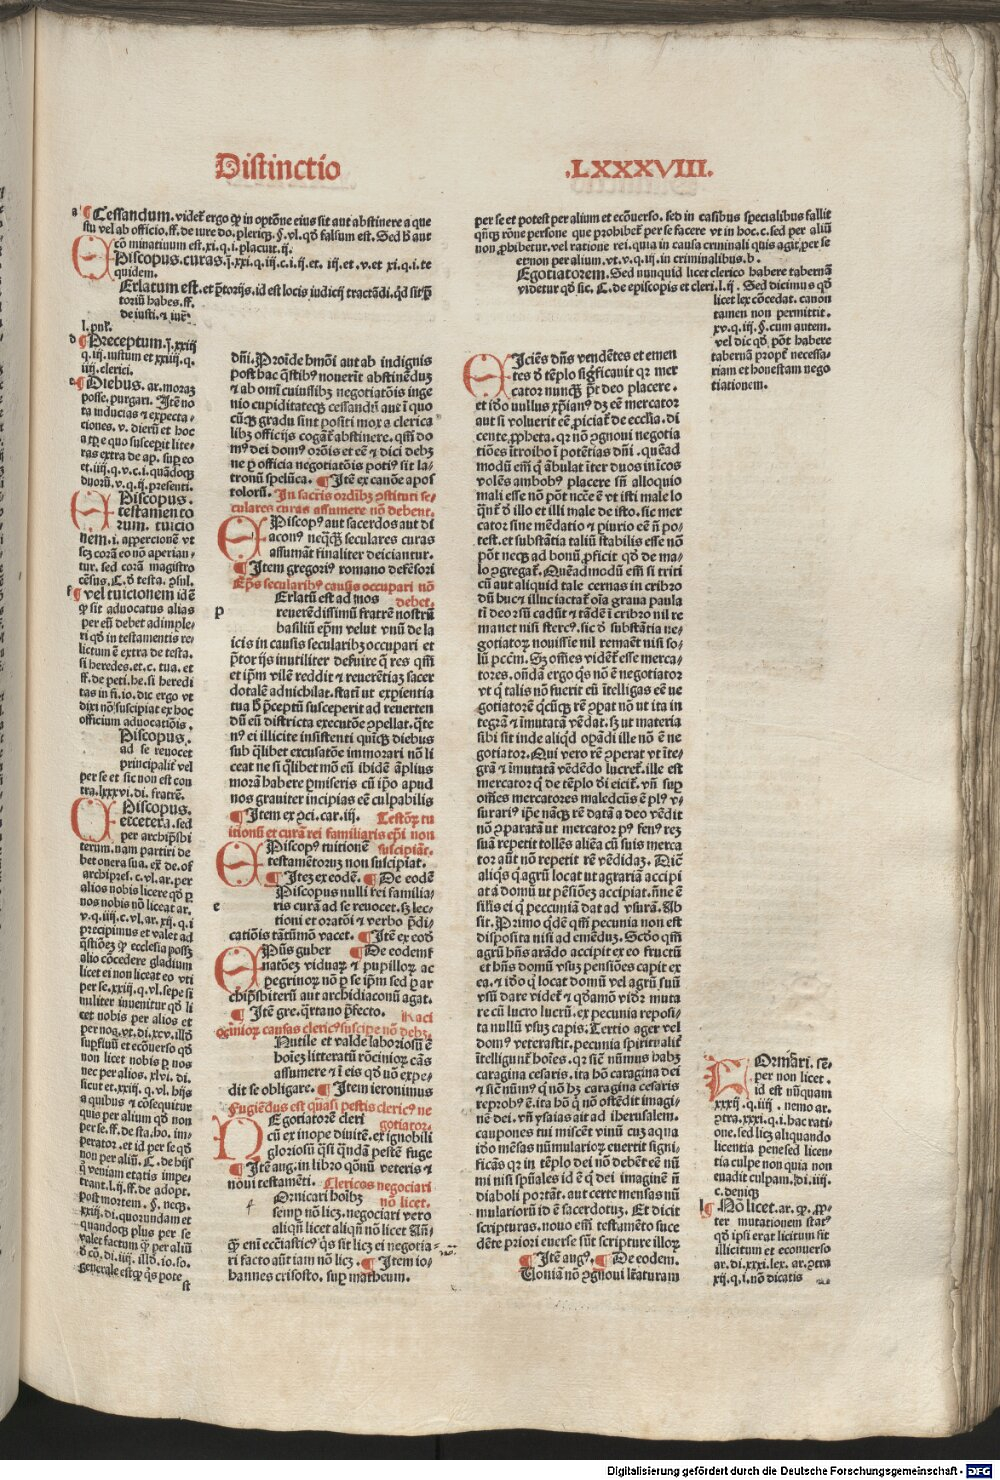 Distinctio .LXXXVIII.
a ¶ Cessandum. videt᷑ ergo ꝙ in optōne eius sit aut abstinere a que
stu vel ab officio. ff. de iure do. pleriqꝫ. §. vl. qđ falsum est. Sed h̄ aut
cō minatiuum est. xi. q. i. placuit. ij.
EPiscopus. curas. j. xxi. q. iij. c. i. ij. et. iij. et. v. et xi. q. i. te
quidem.
Erlatum est. et p̄torijs. id est locis iudicij tractādi. qđ sit p̄
toriū habes. ff.
de iusti. ⁊ iure
l. pnľ.
d ¶ Preceptum. j. xxiij
q. iij. iustum et xxiij. q.
iiij. clerici.
e ¶ Diebus. ar. moraꝫ
posse. purgari. Itē no
ta inducias ⁊ expecta-
ciones. v. dierū et hoc
a tꝑe quo suscepit lite-
ras extra de ap. suꝑ eo
et. iiij. q. v. c. i. qūadoqꝫ
duorū. v. q. ij. presenti.
EPiscopus.
testamento
rum. tuicio
nem. i. apꝑcionē vt
scꝫ corā eo nō aperian-
tur. sed corā magistro
cēsus. C. đ testa. ꝓsul.
f ¶ vel tuicionem idē
ꝙ sit aduocatus alias
per eū debet adimple-
ri qđ in testamentis re-
lictum ē extra de testa.
si heredes. et. c. tua. et
ff. de peti. he. si heredi
tas in fi. io. dic ergo vt
dixi nō suscipiat ex hoc
officium aduocatiōis.
Piscopus.
ad se reuocet
principalit᷑ vel
per se et sic non est con
tra. lxxxvi. di. fratrē.
EPiscopus.
etcetera. sed
per archip̄sbi
terum. nam partiri de
bet onera sua. ex̄ de. of
archip̄res. c. vl. ar. per
alios nobis licere qđ ꝑ
nos nobis nō liceat ar.
v. q. iij. c. vl. ar. xij. q. i
precipimus et valet ad
q̄stiōeꝫ ꝙ ecclesia possꝫ
alio cōcedere gladium
licet ei non liceat eo vti
per se. xxiij. q. vl. sepe si
militer inuenitur qđ li
cet nobis per alios et
per nos. vt. di. xcv. illđ
suꝑfluū et ecōuerso qđ
non licet nobis ꝑ nos
nec per alios. xlvi. di.
sicut et. xxiij. q. vl. hijs
a quibus ⁊ cōsequitur
quis per alium qđ non
per se. ff. de sta. ho. im-
perator. et id per se qđ
non per aliū. C. de hijs
q̄ veniam etatis impe-
trant. l. ij. ff. de adopt.
post mortem. §. necꝫ.
xxiij. di. quorundam et
quandoqꝫ plus per se
valet factum ꝙ per aliū
đ cō. di. iiij. illđ. io. fo.
generale est ꝙ q̄s pote
st
dn̄i. Proīde hmōi aut ab indignis
post hac q̄stibꝰ nouerit abstinēduꝫ
⁊ ab omī cuiussibꝫ negotiatōis inge
nio cupiditatecꝫ cessandū aut ī quo
cūcꝫ gradu sint positi mox a clerica
libꝫ officijs cogāt᷑ abstinere. qm̄ do
mꝰ dei domꝰ orōis et eē ⁊ dici debꝫ
ne ꝑ officia negotiatōis potiꝰ sit la-
tronū speluca. ¶ Itē ex canōe apos
tolorū. In sacris ordībꝫ ꝯstituti se-
culares curas assumere nō debent.
EPiscopꝰ aut sacerdos aut di
aconꝰ neq̄q̄ꝫ seculares curas
assumāt finaliter deiciantur.
¶ Item gregoriꝰ romano defēsori
Ep̄s secularibꝰ causis occupari nō
Erlatū est ad nos debet.
p reuerēdissimū fratrē nostrū
basiliū ep̄m velut vnū de la
icis in causis secularibꝫ occupari et
p̄tor ijs inutiliter deseruire q̄ res qm̄
et ip̄m vilē reddit ⁊ reuerētiaꝫ sacer
dotalē adnichilat. stati vt expientia
tua h̄ p̄ceptū susceperit ad reuerten
dū eū districta executōe ꝯpellat. q̄te
nꝰ ei illicite insistenti quīcꝫ diebus
sub q̄libet excusatōe immorari nō li
ceat ne si q̄libet mō eū ibidē āplius
morā habere ꝑmiseris cū ip̄o apud
nos grauiter incipias eē culpabilis
¶ Item ex ꝯci. car. iij. Testōꝝ tu
itionū et curā rei familiaris ep̄i non
EPiscopꝰ tuitionē suscipiāt.
testamētoruꝫ non suscipiat.
¶ Iteꝫ ex eodē. ¶ De eodē
Piscopus nulli rei familia-
e ris curā ad se reuocet. sꝫ lec-
tioni et oratōi ⁊ verbo p̄di-
catiōis tātūmō vacet. ¶ Itē ex eođ
EPūs guber ¶ De eodemſ
natōeꝫ viduaꝝ ⁊ pupilloꝝ ac
ꝑegrinoꝝ nō ꝑ se ip̄m sed ꝑ ar
chip̄sbiterū aut archidiaconū agat.
¶ Itē gre. q̄rtano p̄fecto. Raci
ocinioꝝ causas clericꝰ suscipe nō debꝫ.
Nutile et valde laboriosū ē
hoīeꝫ litteratū rōcinioꝝ cās
assumere ⁊ ī eis qđ nō expe-
dit se obligare. ¶ Item ieronimus
Fugiēdus est quasi pestis clericꝰ ne
NEgotiatorē cleri gotiator.
cū ex inope diuitē. ex ignobili
gloriosū q̄si q̄ndā pestē fuge
¶ Itē aug. in libro qōnū veteris ⁊
noui testamēti. Clericos negociari
Ornicari hoībꝫ nō licet.
f semꝑ nō licꝫ. negociari vero
aliqn̄ licet aliqn̄ nō licet An̄-
ꝙ enī ecc̄iasticꝰ q̄s sit licꝫ ei negotia-
ri facto aūt iam nō licꝫ. ¶ Itē io-
hannes crisosto. suꝑ matheum.
per se et potest per alium et ecōuerso. sed in casibus specialibus fallit
qn̄qꝫ rōne persone que prohibet᷑ per se facere vt in hoc. c. sed per aliū
non ꝓhibetur. vel ratione rei. quia in causa criminali quis agit per se
et non per alium. vt. v. q. iij. in criminalibus. h.
Egotiatorem. Sed nunquid licet clerico habere tabernā
videtur qđ sic. C. de episcopis et cleri. l. ij. Sed dicimus qđ
licet lex cōcedat. canon
tamen non permittit.
xv. q. iij. §. cum autem.
vel dic qđ. pōt habere
tabernā propt̄ necessa-
riam et honestam nego
tiationem.
EIciēs dn̄s vendētes et emen
tes đ tēplo sig̅ficauit qꝛ mer
cator nuncꝙ p̄t deo placere.
et iđo vullus xp̄ianꝰ dꝫ eē mercator
aut si voluerit eē ꝓiciat᷑ de ecclīa. di
cente ꝓpheta. qꝛ nō ꝯgnoui negotia
tiōes ītroibo ī potētias dn̄i. quēad
modū em̄ q̄ ābulat īter duos inīcos
volēs ambobꝰ placere sn̄ alloquio
mali esse nō pōt nccē ē vt isti male lo
q̄nt᷑ đ illo et illi male de isto. sic mer
cator sine mēdatio ⁊ piurio eē n̄ po-
test. et substātia taliū stabilis esse nō
pōt necꝫ ad bonū ꝓficit qđ de ma-
lo ꝯgregat᷑. Quēadmodū em̄ si tritī
cū aut aliquid tale cernas in cribro
dū huc ⁊ illuc iactat᷑ oīa graua paula
tī deorsū cadūt ⁊ tādē ī cribro nil re
manet nisi stercꝰ. sic đ substātia ne-
gotiatoꝝ nouissie nil remaēt nisi so-
lū pccm̄. Sꝫ om̄es videt᷑ esse merca-
tores. on̄dā ergo q̄s nō ē negotiator
vt q̄ talis nō fuerit eū ītelligas eē ne
gotiatorē q̄cūcꝫ rē ꝯpat nō ut ita in
tegrā ⁊ īmutatā vēdat. sꝫ ut materia
sibi sit inde aliqđ oꝑādi ille nō ē ne
gotiator. Qui vero rē ꝯperat vt īte-
grā ⁊ īmutatā vēdēdo lucret᷑. ille est
mercator q̄ de tēplo đi eicit᷑. vn̄ suꝑ
om̄es mercatores maledcūs ē plꝰ v-
surariꝰ ip̄e nācꝫ rē datā a deo vēdit
nō ꝯparatā ut mercator pꝰ fenꝰ reꝫ
suā repetit tollēs aliēa cū suis merca
tor aūt nō repetit rē vēdidaꝫ. Diē
aliq̄s q̄ agrū locat ut agrariā accipi
at a domū ut pēsiōeꝫ accipiat. n̄ne ē
silis ei q̄ peccuniā dat ad vsurā. Ab
sit. Primo q̄dē qm̄ pecunia non est
disposita nisi ad emēduꝫ. Scđo qm̄
agrū hn̄s arādo accipit ex eo fructū
et hn̄s domū vsuꝫ pensiōes capit ex
ea. ⁊ iđo q̄ locat domū vel agrū suū
vsū dare videt᷑ ⁊ qđamō vidꝛ muta
re cū lucro lucrū. ex pecunia reposi-
ta nullū vsuꝫ capis. Tertio ager vel
domꝰ veterastit. pecunia spiritualit᷑
ītelligunt᷑ hoīes. qꝛ sicē nūmus habꝫ
caragina cesaris. ita hō caragina dei
⁊ sicē nūmꝰ q̄ nō hꝫ caragina cesaris
reprobꝰ ē. ita hō q̄ nō ostēdit imagi-
nē dei. vn̄ ysaias ait ad iherusalem.
caupones tui miscēt vinū cuꝫ aqua
iđo mēsas nūmularioꝝ euertit signi-
ficās qꝛ in tēplo dei nō debēt eē nū
mi nisi spūales id ē q̄ dei imaginē n̄
diaboli portāt. aut certe mensas nū
mulariorū iđ ē sacerdotuꝫ. Et dicit
scripturas. nouo em̄ testamēto suce
dēte priori euerse sūt scripture illoꝝ
¶ Itē augꝰ. ¶ De eodem.
Uoniā nō ꝯgnoui lr̄aturam
FOrnicari. se-
per non licet.
id est nūquam
xxxij. q. iiij. nemo ar.
ꝯtra. xxxi. q. i. hac rati-
one. sed licꝫ aliquando
licentia penesed licen-
tia culpe non quia non
euadit culpam. di. iiij.
c. denicꝫ
h ¶ Nō licet. ar. ꝙ. ꝓp-
ter mutationem statꝰ
qđ ipsi erat licitum sit
illicitum et econuerso
ar. di. xxxi. lex. ar. ꝯtra
xij. q. i. nō dicatis
Digitalisierung gefördert durch die Deutsche Forschungsgemeinschaft - DFG